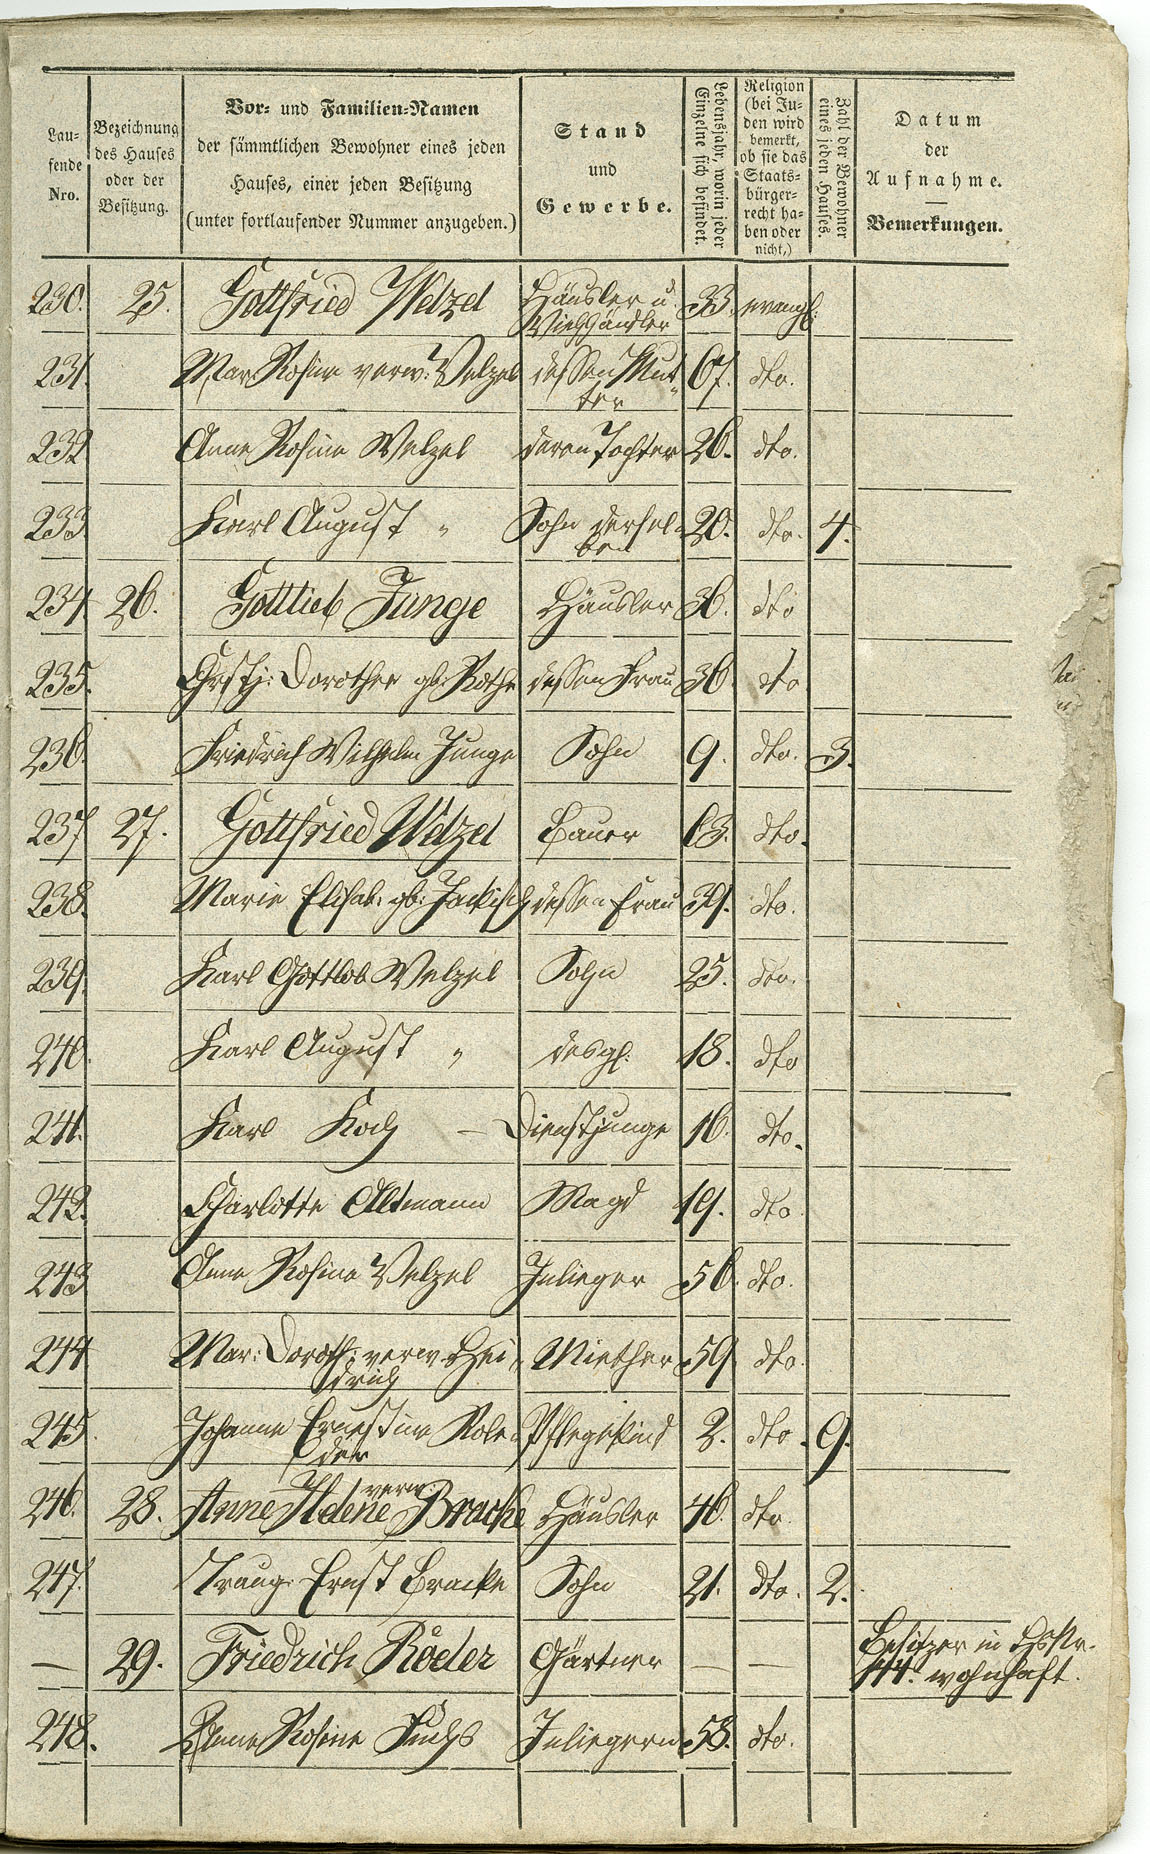 Laufende Nro.
Bezeichnung des Hauses oder der Besitzung.
Vor- und Familien-Namen
der sämmtlichen Bewohner eines jeden
Hauses, einer jeden Besitzung
(unter fortlaufender Nummer anzugeben.)
Stand
und
Gewerbe.
Lebensjahr, worin jeder Einzelne sich befindet.
Religion (bei Juden wird bemerkt, ob sie das Staatsbürgerrecht haben oder nicht,)
Zahl der Bewohner eines jeden Hauses.
Datum
der
Aufnahme.
Bemerkungen.
230. 25. Gottfried Welzel Häusler u. Viehhändler 33. evangl:
231. Mar. Rosina verw: Welzel dessen Mutter 67. dto.
232 Anna Rosina Welzel deren Tochter 26. dto.
233 Karl August " Sohn derselben 20. dto. 4.
234 26. Gottlieb Junge Häusler 36. dto
235. Christj: Dorothea gb: Rothe dessen Frau 36. dto
236. Friedrich Wilhelm Junge Sohn 9. dto. 3.
237 27. Gottfried Welzel Bauer 63. dto.
238. Marie Elisab: gb: Jackisch dessen Frau 39. dto.
239. Karl Gottlob Welzel Sohn 25. dto.
240. Karl August " desgl. 18. dto
241. Karl Koch — Dienstjunge 16. dto.
242. Charlotte Altmann Magd 19. dto.
243 Anna Rosina Welzel Inlieger 56. dto.
244 Mar: Doroth: verw. Heidrich Miether 59. dto.
245. Johanne Ernestine Roleder Pflegekind 2. dto. 9.
246. 28. Anne Helene verw. Bracke Häusler 46. dto.
247. Traug. Ernst Bracke Sohn 21. dto. 2.
— 29. Friedrich Röder Gärtner — — Besitzer in HsNr. 144. wohnhaft.
248. Anna Rosine Fuchs Inliegerin 58. dto.